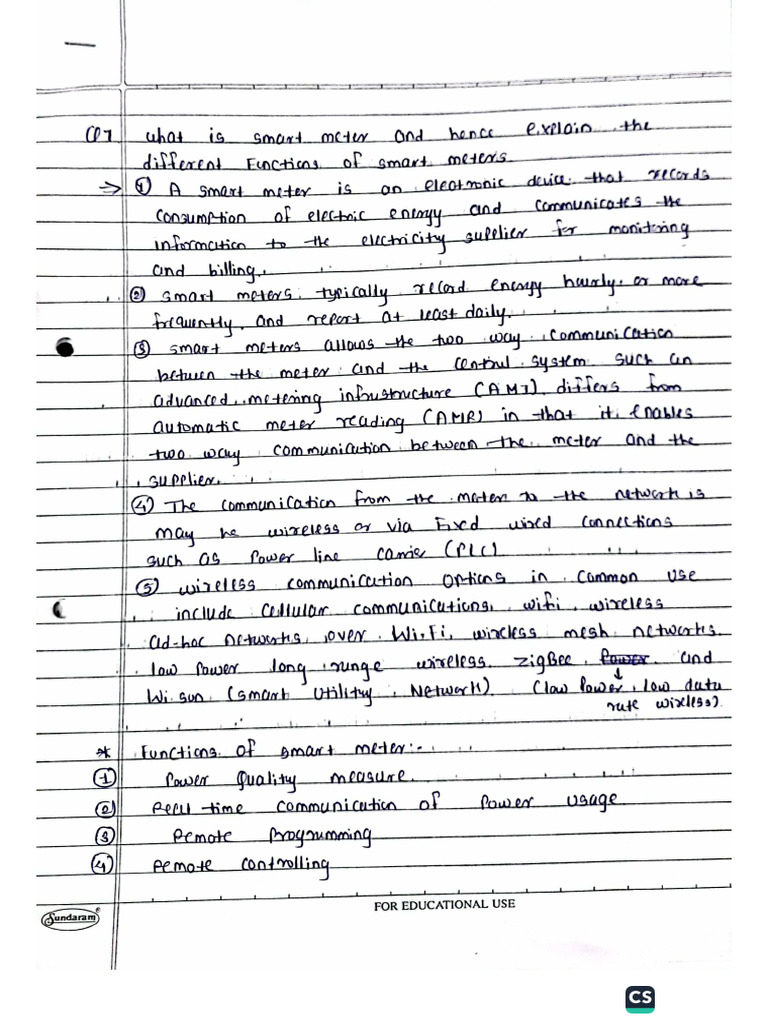 Q1 What is smart meter and hence explain the
different Functions of smart meters.
→ ① A smart meter is an electronic device that records
consumption of electric energy and communicates the
information to the electricity supplier for monitoring
and billing.
② smart meters typically record energy hourly or more
frequently, and report at least daily.
③ smart meters allows the two way communication
between the meter and the central system such an
advanced metering infrustructure (AMI) differs from
automatic meter reading (AMR) in that it enables
two way communication between the meter and the
supplier.
④ The communication from the meter to the network is
may be wireless or via Fixed wired connections
such as Power line carrier (PLC)
⑤ wireless communication options in common use
include cellular communications, wifi, wireless
ad-hoc networks over Wi.Fi, wireless mesh networks
low power long runge wireless, zigBee, Power and
Wi.sun (smart Utility Network) (low Power, low data
rate wireless)
* Functions of smart meter:-
① Power Quality measure.
② Real-time communication of Power usage
③ Remote Programming
④ Remote controlling
Sundaram®
FOR EDUCATIONAL USE
CS